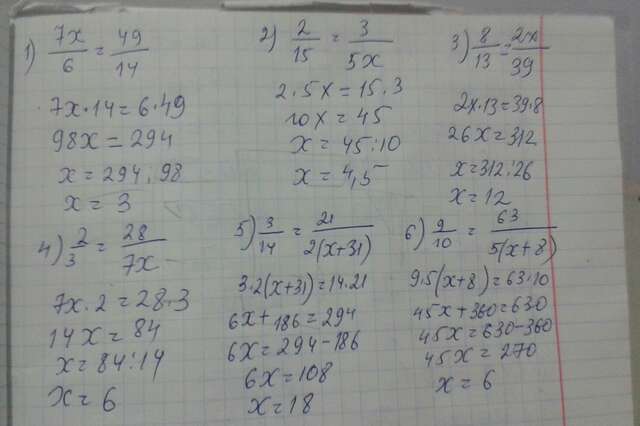 1) 7x/6 = 49/14
7x·14=6·49
98x=294
x=294:98
x=3
2) 2/15 = 3/5x
2·5x=15·3
10x=45
x=45:10
x=4,5
3) 8/13 = 2x/39
2x·13=39·8
26x=312
x=312:26
x=12
4) 2/3 = 28/7x
7x·2=28·3
14x=84
x=84:14
x=6
5) 3/14 = 21/2(x+31)
3·2(x+31)=14·21
6x+186=294
6x=294-186
6x=108
x=18
6) 9/10 = 63/5(x+8)
9·5(x+8)=63·10
45x+360=630
45x=630-360
45x=270
x=6